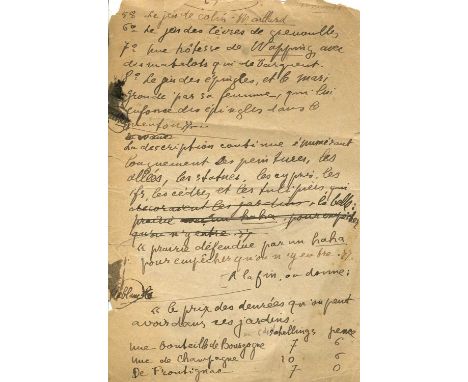 5º Le jeu de colin-Maillard
6º Le jeu des lèvres de grenouilles
7º une hôtesse de Wapping avec
des matelots qui de
8º Le jeu des épingles, et le mari
grondé par sa femme, qui lui
enfonce des épingles dans le
menton »
La description continue énumérant
longuement les peintures, les
allées, les statues, les cyprès, les
ifs, les cèdres et les tulipiers qui
décoraient les jardins, la belle
prairie pour empêcher
qu'on n'y entre. »
« prairie défendue par un haha
pour empêcher qu'on n'y entre. »
A la fin, on donne :
« le prix des denrées qu'on peut
avoir dans ces jardins.
schellings pence
une bouteille de Bourgogne 7 6
une de Champagne 10 6
De Frontignac 7 0